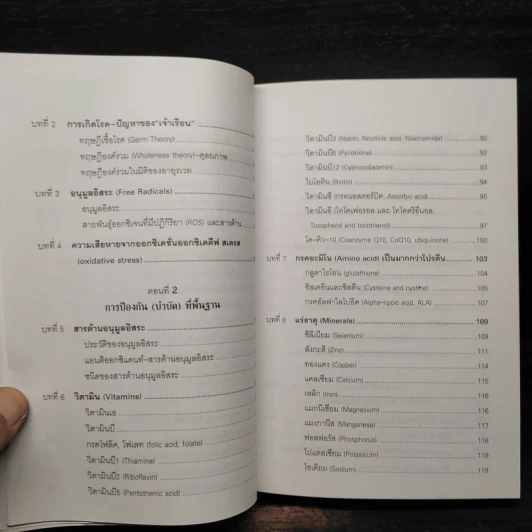 บทที่ 2 การเกิดโรค-ปัญหาของ"เจ้าเรือน"
ทฤษฎีเชื้อโรค (Germ Theory)
ทฤษฎีองค์รวม (Wholeness theory)-ดุลยภาพ
ทฤษฎีองค์รวมในมิติของอายุรเวท
บทที่ 3 อนุมูลอิสระ (Free Radicals)
อนุมูลอิสระ
สายพันธุ์ออกซิเจนที่มีปฏิกิริยา (ROS) และสารต้าน
บทที่ 4 ความเสียหายจากออกซิเดชั่นออกซิเดตีฟ สเตรส
(oxidative stress)
ตอนที่ 2
การป้องกัน (บำบัด) ที่พื้นฐาน
บทที่ 5 สารต้านอนุมูลอิสระ
ประวัติของอนุมูลอิสระ
แอนติออกซิแดนท์-สารต้านอนุมูลอิสระ
ชนิดของสารต้านอนุมูลอิสระ
บทที่ 6 วิตามิน (Vitamins)
วิตามินเอ
วิตามินบี
กรดโฟลิค, โฟเลท (folic acid, folate)
วิตามินบี1 (Thiamine)
วิตามินบี2 (Riboflavin)
วิตามินบี5 (Pantothenic acid)
วิตามินบี3 (Niacin, Nicotinic acid, Niacinamide) 92
วิตามินบี6 (Pyridoxine) 92
วิตามินบี12 (Cyanocobalamin) 93
ไบโอติน (Biotin) 94
วิตามินซี (กรดแอสคอร์บิค, Ascorbic acid) 95
วิตามินอี (โทโคเฟอรอล และ โทโคตรีอีนอล,
Tocopherol and tocotrienol) 98
โค-คิว-10 (Coenzyme Q10, CoQ10, ubiquinone) 100
บทที่ 7 กรดอะมิโน (Amino acid) เป็นมากกว่าโปรตีน 103
กลูตาไธโอน (glutathione) 103
ซิสเตอีนและซิสตีน (Cysteine and cystine) 105
กรดอัลฟาไลโปอิค (Alpha-lipoic acid, ALA) 107
บทที่ 8 แร่ธาตุ (Minerals) 109
ซีลีเนียม (Selenium) 109
สังกะสี (Zinc) 111
ทองแดง (Copper) 114
แคลเซียม (Calcium) 115
เหล็ก (Iron) 116
แมกนีเซียม (Magnesium) 116
แมงกานีส (Manganese) 117
ฟอสฟอรัส (Phosphorus) 118
โปแตสเซียม (Potassium) 119
โซเดียม (Sodium) 119